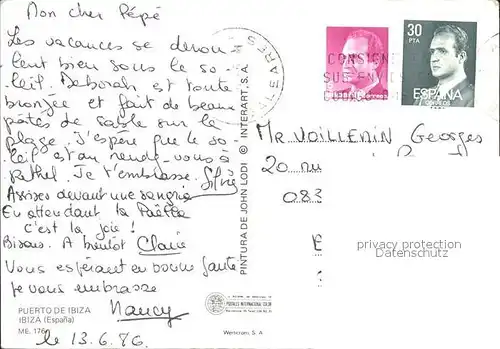 Mon cher Pépé
Les vacances se derou
lent bien sous le so-
leil. Deborah est toute
bronzée et fait de beaux
pâtés de sable sur la
plage. J'espère que le so-
leil est au rendez-vous à
Rethel. Je t'embrasse. Silvie
Assises devant une sangria
En attendant la Paëlla
c'est la joie !
Bisous. A bientôt Claire
Vous espérant en bonne santé
je vous embrasse
Nancy
le 13.6.86
PUERTO DE IBIZA
IBIZA (España)
ME. 176
PINTURA DE JOHN LODI © INTERART, S.A.
POSTALES INTERNATIONAL COLOR
Werncrum, S. A
BALEARES
CONSIGNE
España correos
30
PTA
ESPAÑA
CORREOS
Mr VOILLEMIN Georges
20 ru
083
privacy protection
Datenschutz